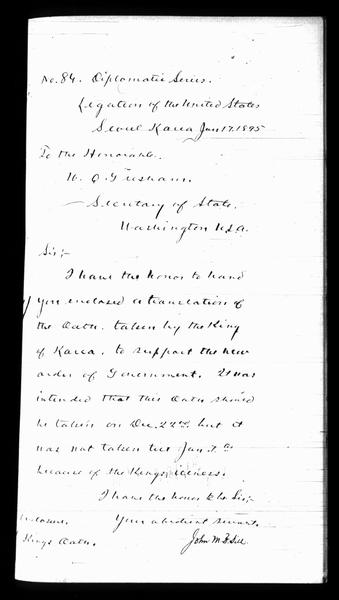 No. 84. Diplomatic Series.
Legation of the United States
Seoul Korea Jan 17. 1895
To the Honorable.
W. Q. Gresham.
Secretary of State.
Washington U.S.A.
Sir:-
I have the honor to hand
you enclosed a translation of
the Oath. taken by the King
of Korea. to support the new
order of Government. It was
intended that this Oath should
be taken on Dec. 22nd. but it
was not taken till Jan. 7th
because of the Kings illness.
I have the honor to be Sir:-
Enclosure. Your obedient servant.
Kings Oath. John M. B. Sill